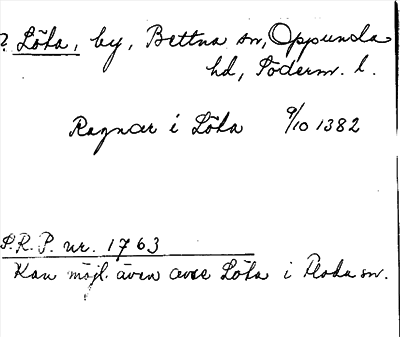 ? Löta, by, Bettna sn, Oppunda
hd, Söderm. l.
Ragnar i Löta 9/10 1382
S.R.P. nr. 1763
Kan möjl. även avse Löta i Floda sn.